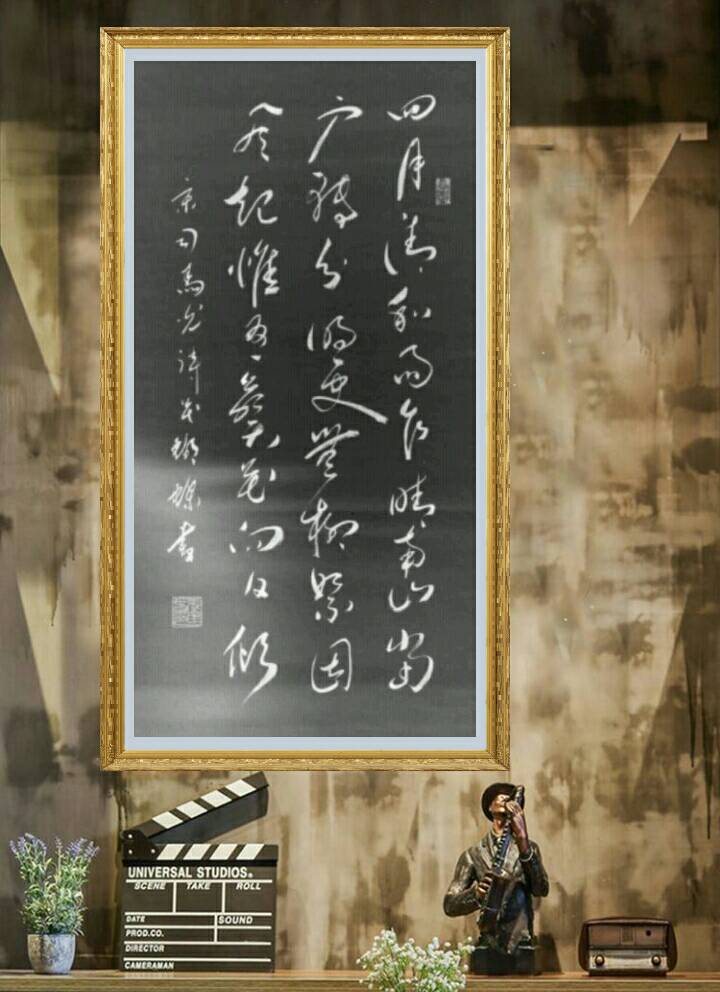 四月清和雨乍晴南山當
戶轉分明更無柳絮因
風起惟有葵花向日傾
宋司馬光詩 書
UNIVERSAL STUDIOS®
SCENE TAKE ROLL
DATE SOUND
PROD.CO.
DIRECTOR
CAMERAMAN